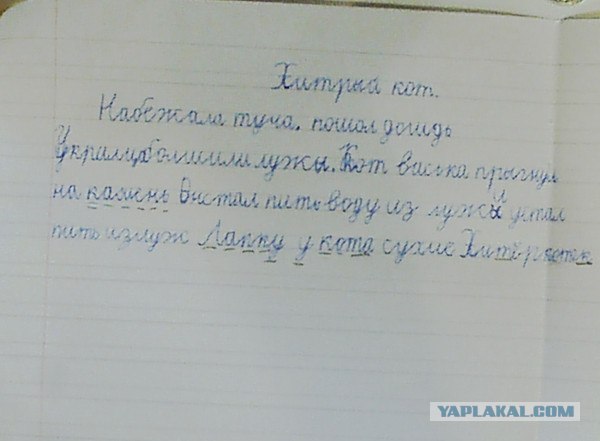 Хитрый кот.
Набежала туча. пошол дошдь
У крилца болшили лужы. Кот васька прыгнул
на камень встал пить воду из лужы устал
пить из луж Лапку у кота сухие Хитёр коток
YAPLAKAL.COM